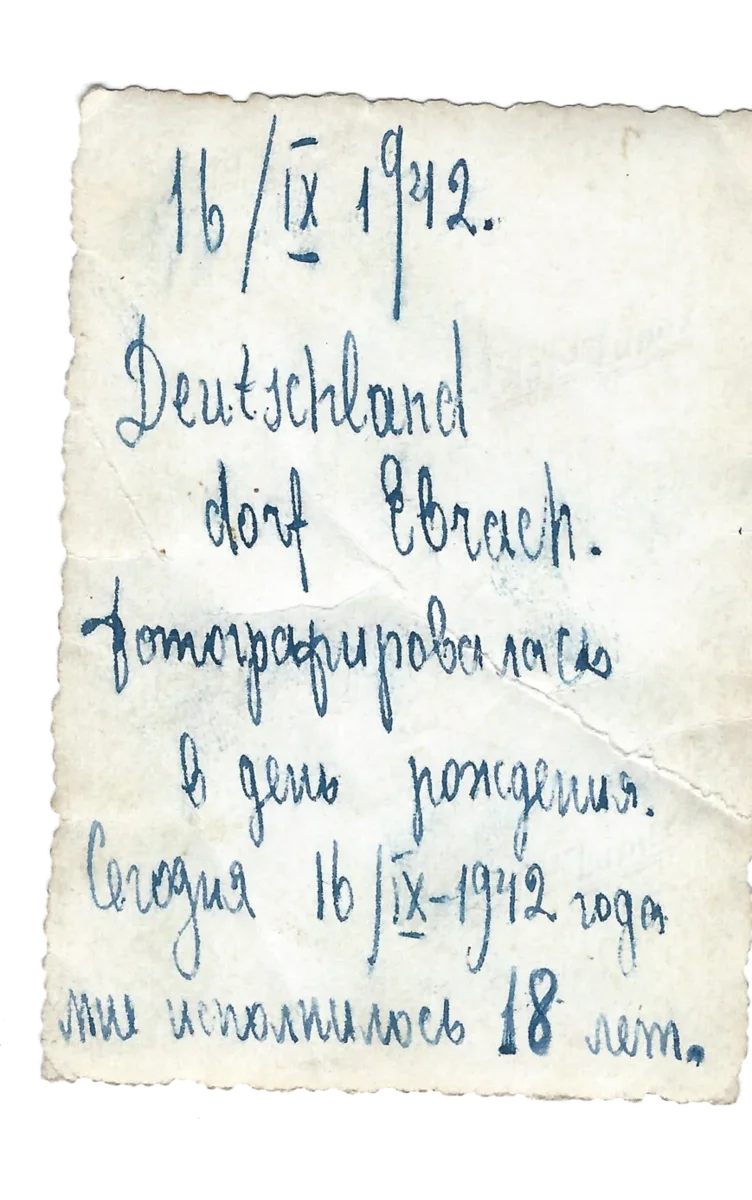 16/IX 1942.
Deutschland
dorf Ebrach.
фотографировалась
в день рождения.
Сегодня 16/IX-1942 года
мне исполнилось 18 лет.